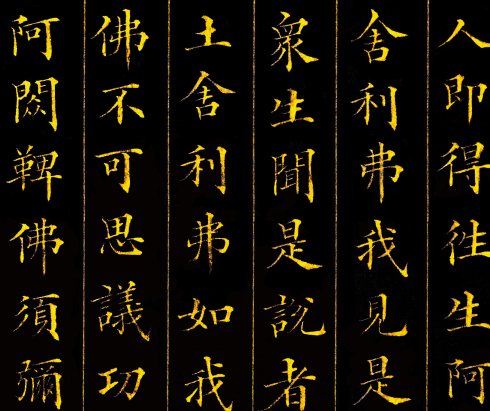 人即得徃生阿
舍利弗我見是
衆生聞是說者
土舍利弗如我
佛不可思議功
阿閦鞞佛須彌